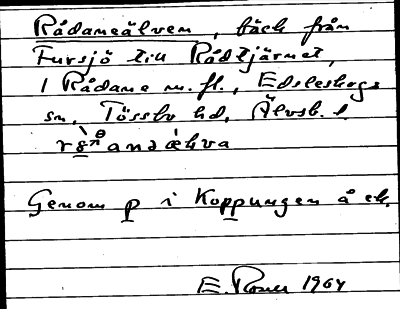 Rådaneälven, bäck från
Fursjö till Rådtjärnet,
1 Rådane m. fl., Edsleskogs
sn, Tössbo hd, Älvsb. l.
Genom p i Koppungen å ek.
E. 1964